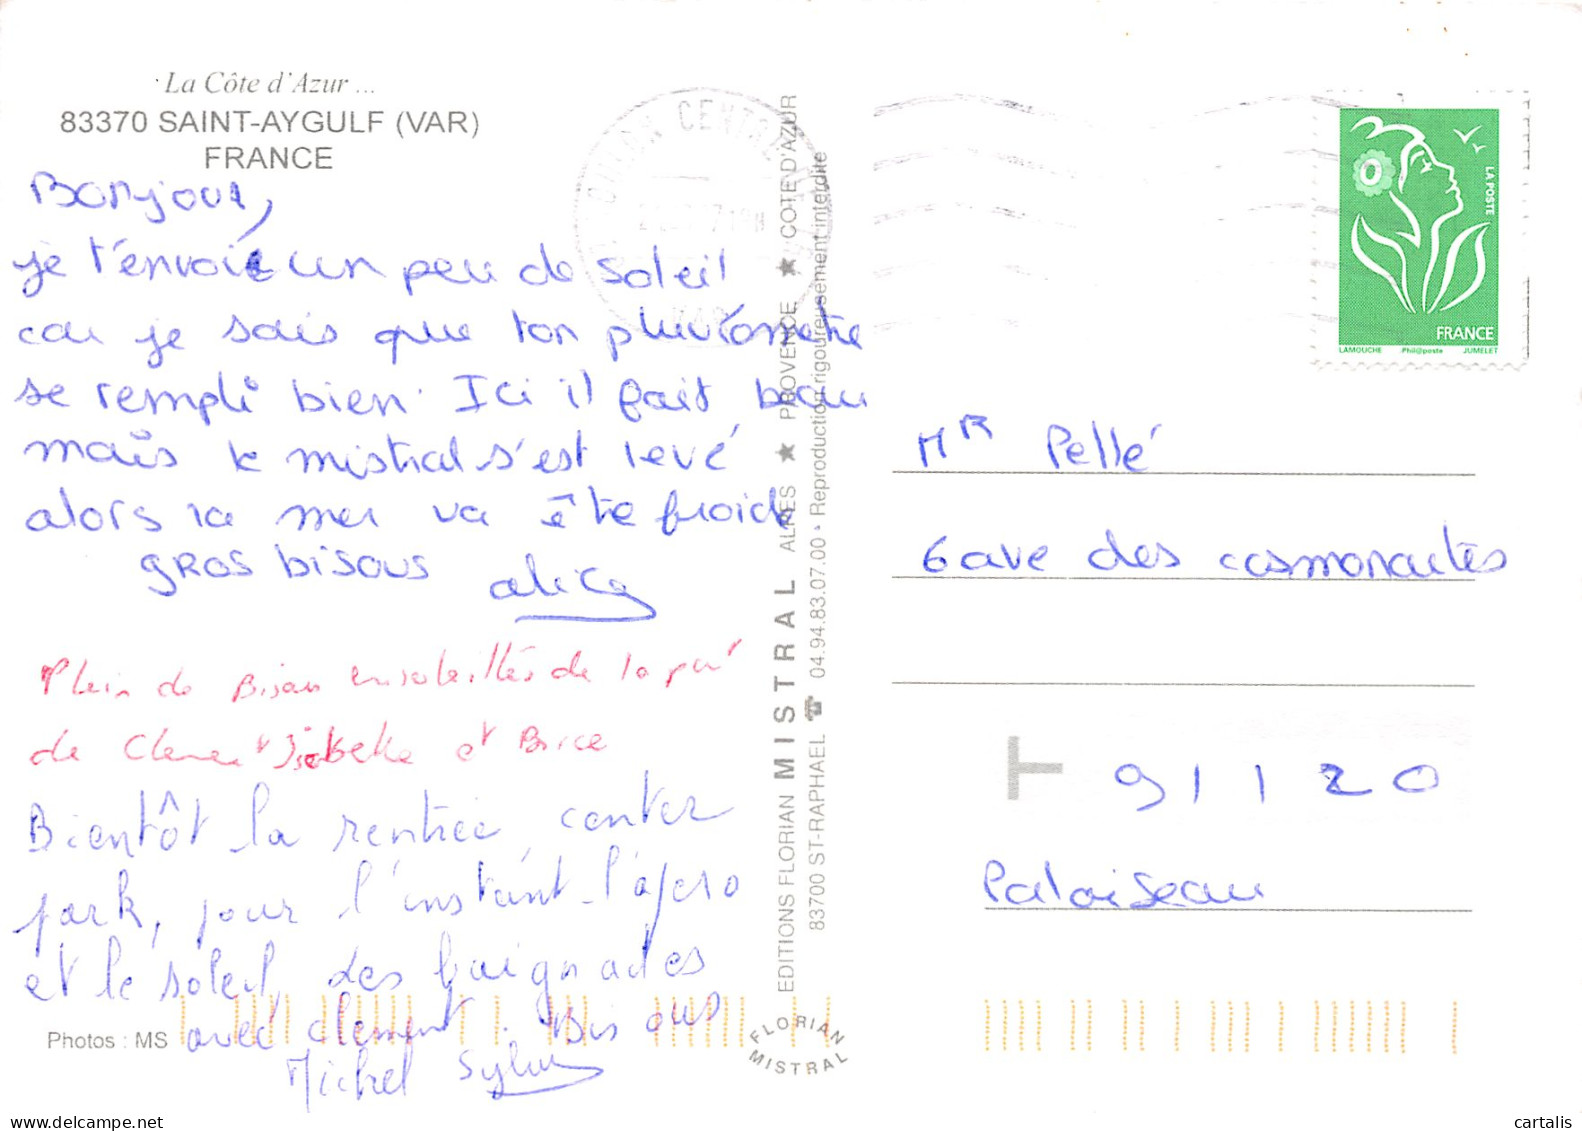 La Côte d'Azur ...
83370 SAINT-AYGULF (VAR)
FRANCE
Bonjour,
je t'envoie un peu de soleil
car je sais que ton pluviometre
se rempli bien. Ici il fait beau
mais le mistral s'est levé
alors la mer va être froide
gros bisous alice
Plein de Bisou ensoleillés de la part
de Clement Isabelle et Brice
Bientôt la rentrée, center
park, pour l'instant l'apero
et le soleil, des baignades
avec clement. Bisous
Michel Sylvie
Photos : MS
EDITIONS FLORIAN MISTRAL ALPES ★ PROVENCE ★ COTE D'AZUR
83700 ST-RAPHAEL ☎ 04.94.83.07.00 • Reproduction rigoureusement interdite
FLORIAN
MISTRAL
TOULON CENTRE
VAR
LA POSTE
FRANCE
LAMOUCHE Phil@poste JUMELET
Mr Pellé
6 ave des cosmonautes
91120
Palaiseau
cartalis
delcampe.net